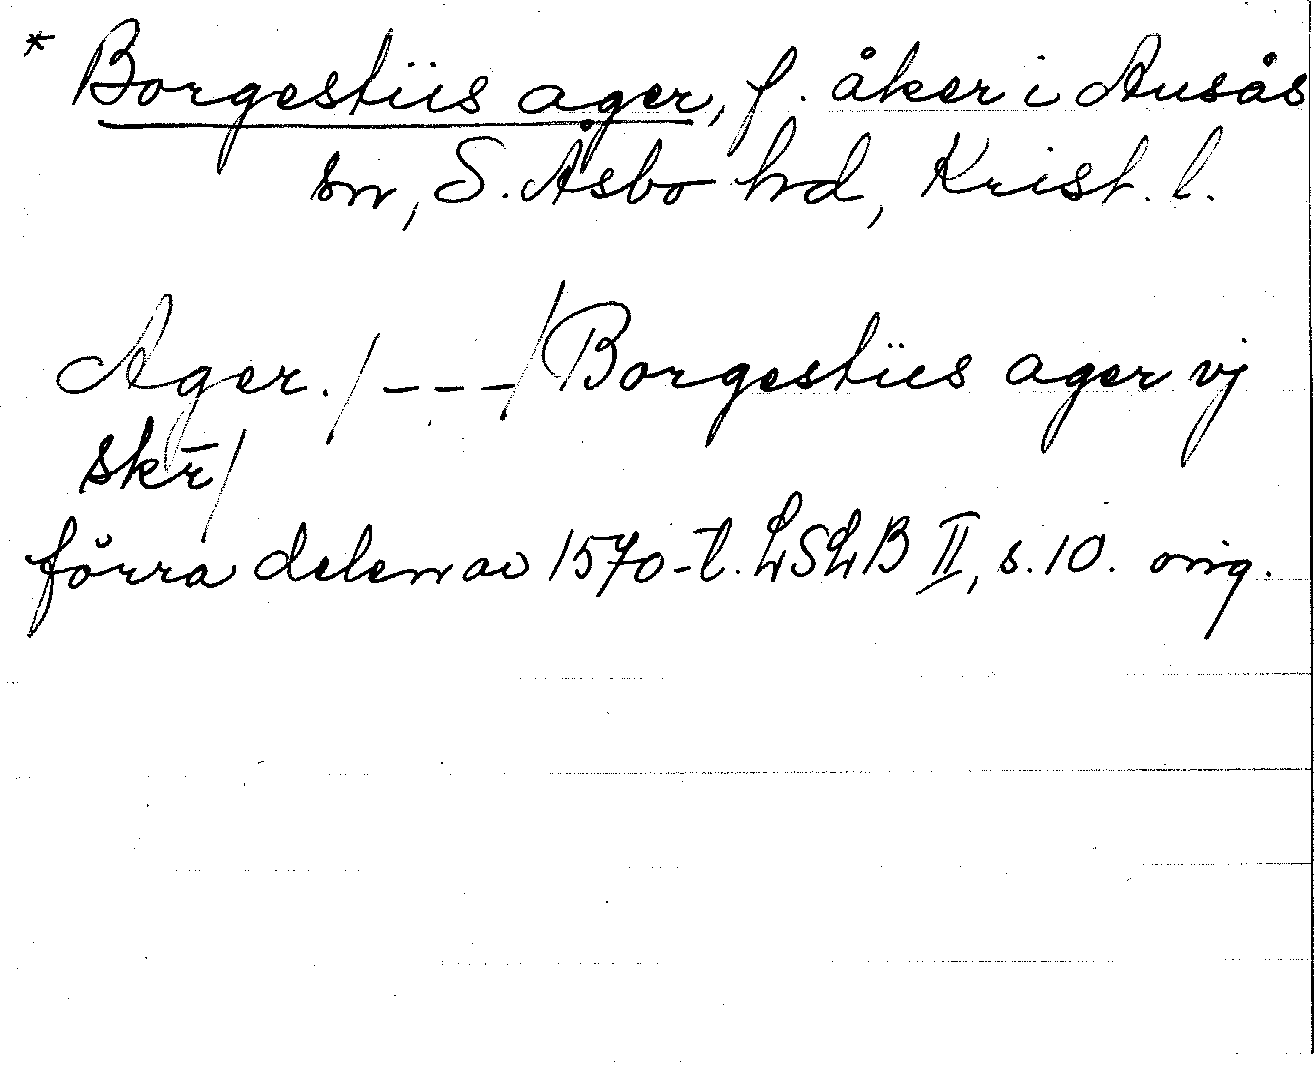 * Borgestiis ager, f. åker i Ausås
sn, S. Åsbo hd, Krist. l.
Ager. / - - - / Borgestiis ager vj
skr̄ /
förra delen av 1570-t. LSLB II, s. 10. orig.